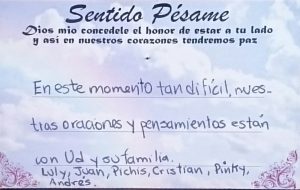 Sentido Pésame
Dios mio concedele el honor de estar a tu lado
y asi en nuestros corazones tendremos paz
En este momento tan difícil, nues-
tras oraciones y pensamientos están
con Ud y su familia.
Luly, Juan, Pichis, Cristian, Pinky,
Andres.